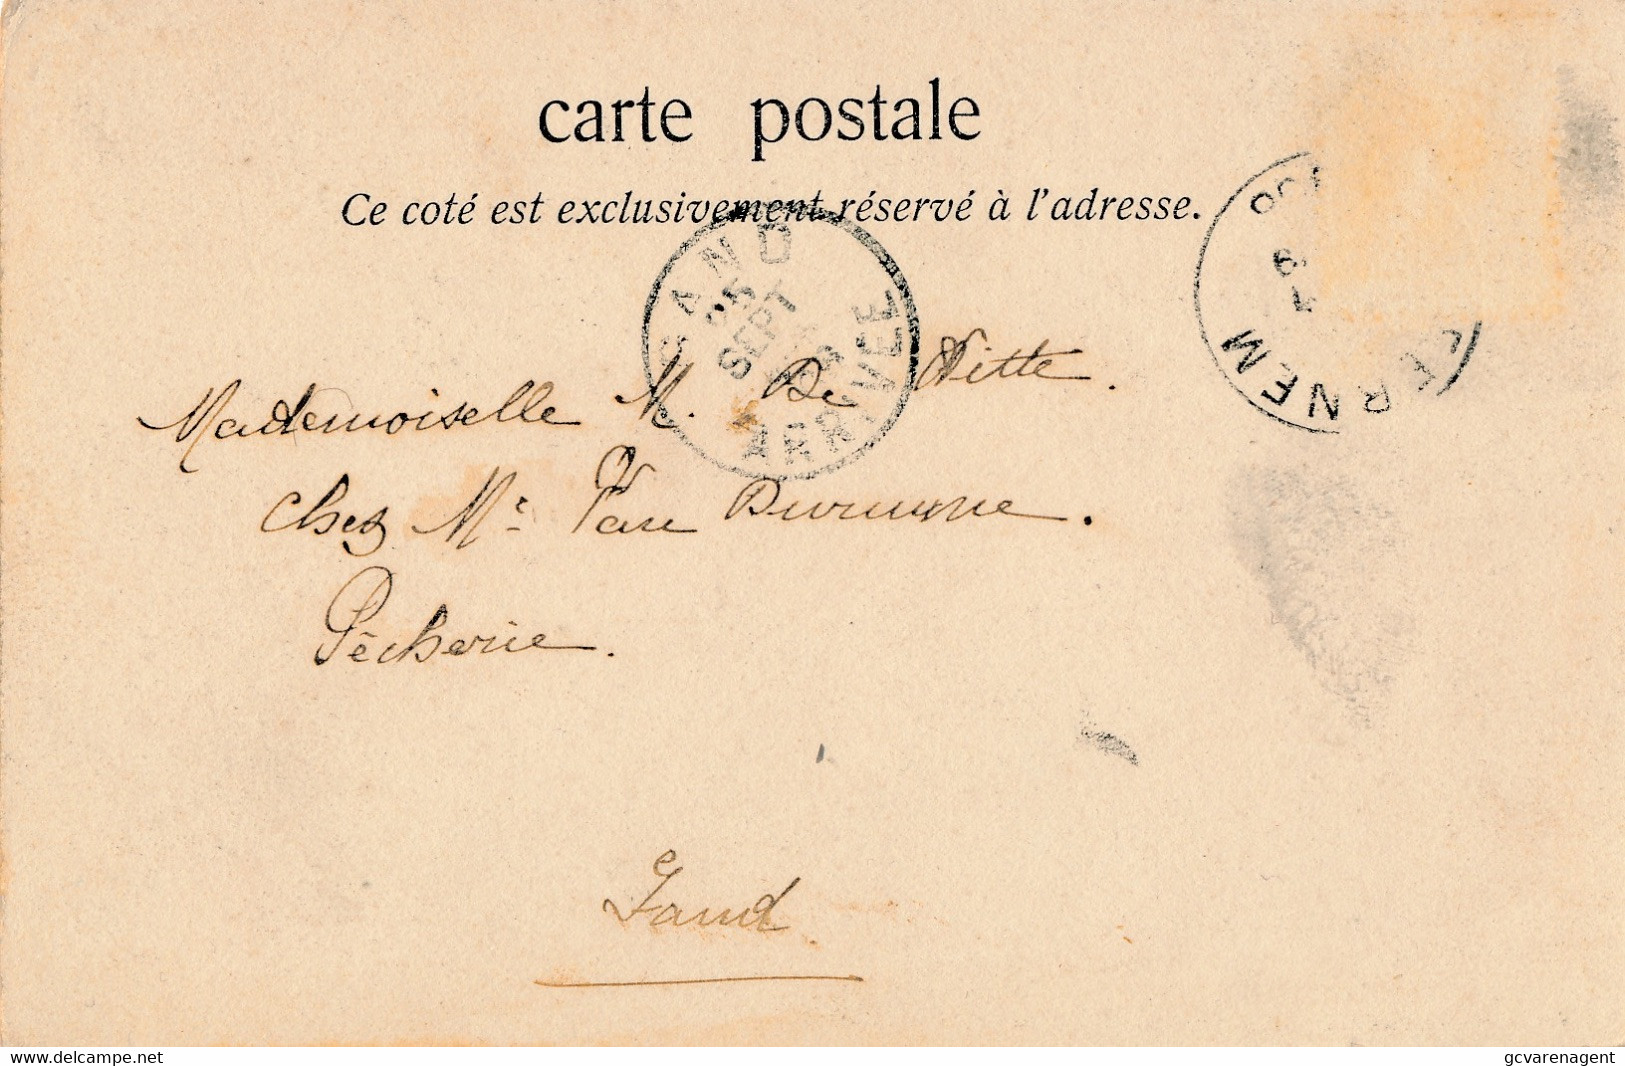 carte postale
Ce coté est exclusivement réservé à l'adresse.
GAND
25
SEPT
ARRIVEE
ERNEM
Mademoiselle M. De Witte.
chez Mr Van
Pêcherie.
Gand
delcampe.net
gcvarenagent